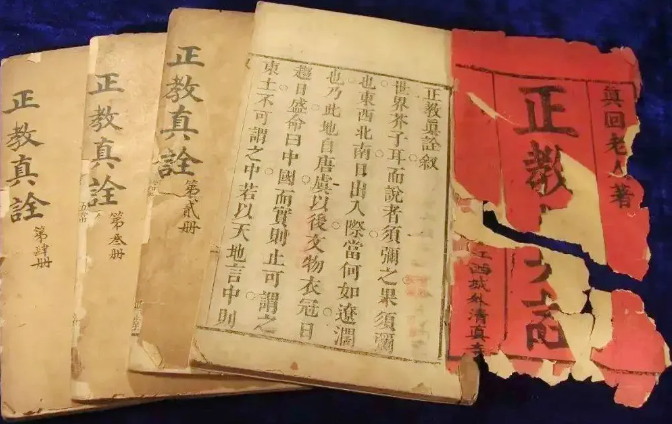 眞回老人著
正教
江西城外清眞寺
正教眞詮叙
世界芥子耳而說者須彌之果須彌
也東西北南日出入際當何如遼濶
也乃此地自唐虞以後文物衣冠日
趨日盛命曰中國而實則止可謂之
東土不可謂之中若以天地言中則
正教真詮
第貳册
正教真詮
第叁册
正教真詮
第肆册